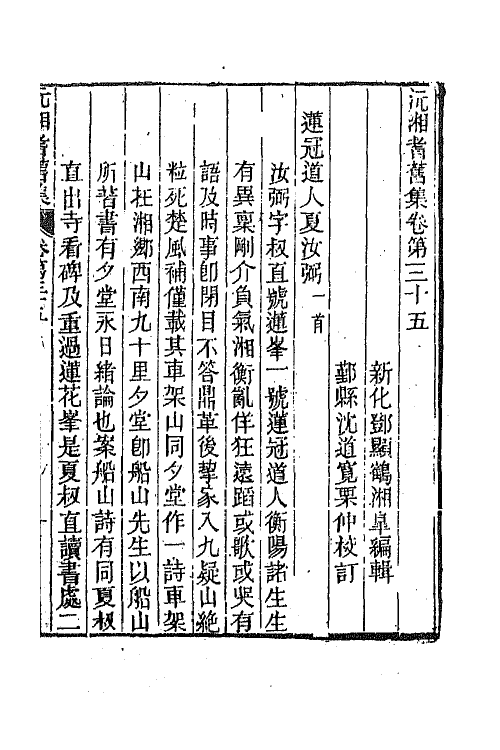 沅湘耆舊集卷第三十五
新化鄧顯鶴湘臯編輯
鄞縣沈道寬栗仲校訂
蓮冠道人夏汝弼一首
汝弼字叔直號蓮峯一號蓮冠道人衡陽諸生生
有異稟剛介負氣湘衡亂佯狂遠蹈或歌或哭有
語及時事卽閉目不答鼎革後挈家入九疑山絶
粒死楚風補僅載其車架山同夕堂作一詩車架
山在湘鄉西南九十里夕堂卽船山先生以船山
所著書有夕堂永日緒論也案船山詩有同夏叔
直出寺看碑及重過蓮花峯是夏叔直讀書處二
沅湘耆舊集 卷第三十五 一